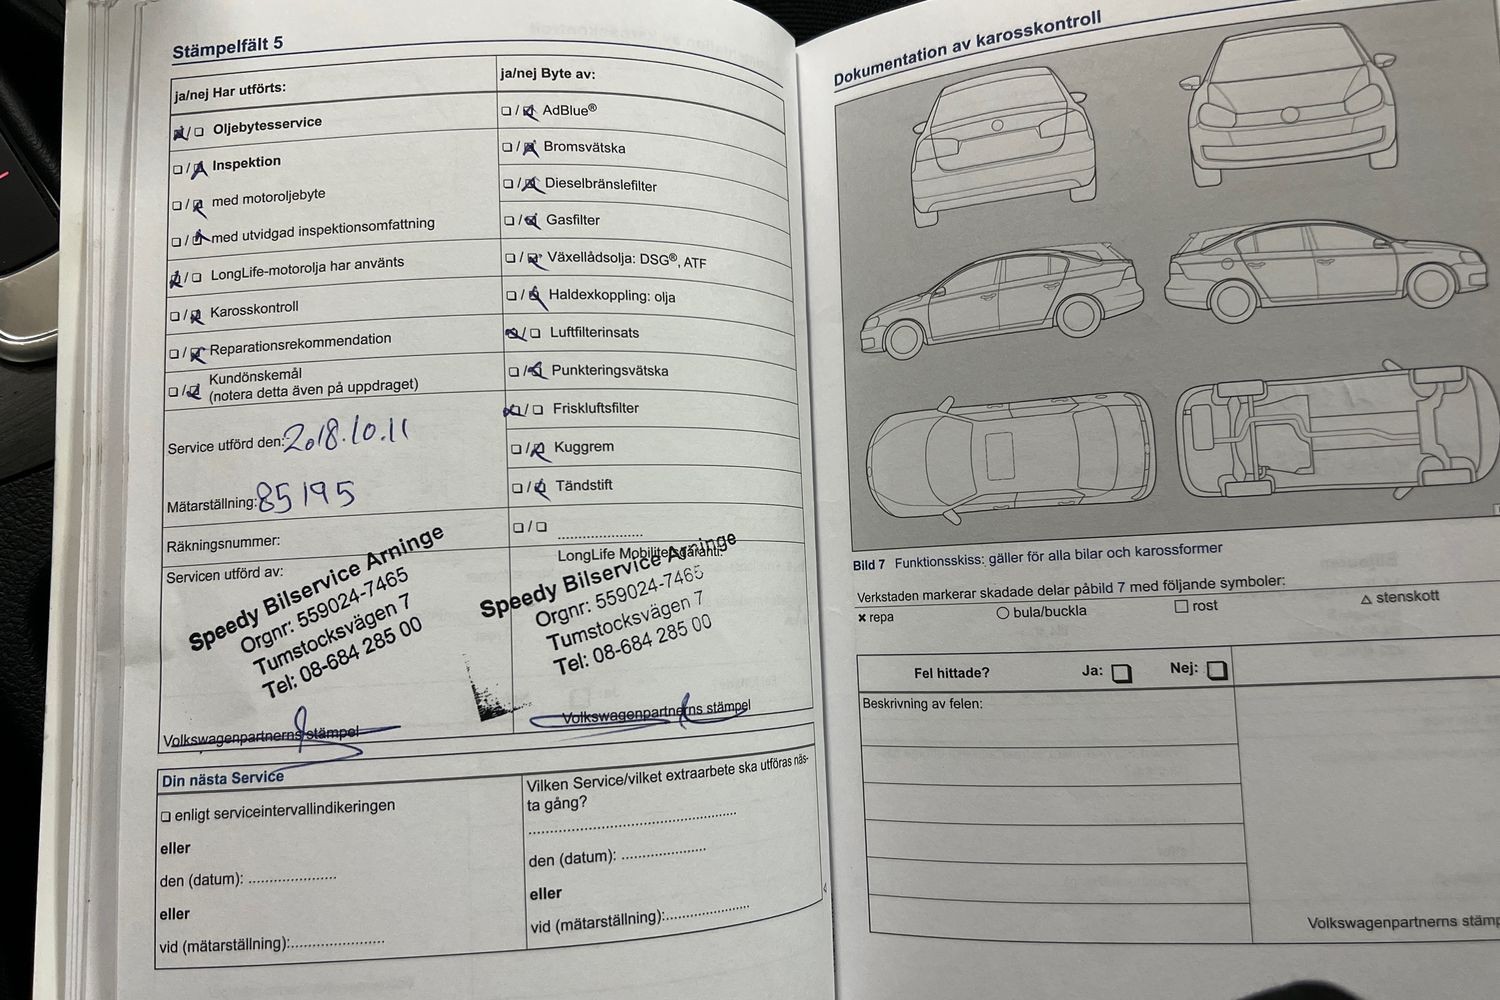 Stämpelfält 5
ja/nej Har utförts:
☒/☐ Oljebytesservice
☐/☒ Inspektion
☐/☒ med motoroljebyte
☐/☒ med utvidgad inspektionsomfattning
☒/☐ LongLife-motorolja har använts
☐/☒ Karosskontroll
☐/☒ Reparationsrekommendation
☐/☒ Kundönskemål
(notera detta även på uppdraget)
Service utförd den: 2018.10.11
Mätarställning: 85195
Räkningsnummer:
Servicen utförd av:
Speedy Bilservice Arninge
Orgnr: 559024-7465
Tumstocksvägen 7
Tel: 08-684 285 00
Volkswagenpartnerns stämpel
ja/nej Byte av:
☐/☒ AdBlue®
☐/☒ Bromsvätska
☐/☒ Dieselbränslefilter
☐/☒ Gasfilter
☐/☒ Växellådsolja: DSG®, ATF
☐/☒ Haldexkoppling: olja
☒/☐ Luftfilterinsats
☐/☒ Punkteringsvätska
☒/☐ Friskluftsfilter
☐/☒ Kuggrem
☐/☒ Tändstift
☐/☐ ......................
LongLife Mobilitetsgaranti:
Speedy Bilservice Arninge
Orgnr: 559024-7465
Tumstocksvägen 7
Tel: 08-684 285 00
Volkswagenpartnerns stämpel
Din nästa Service
☐ enligt serviceintervallindikeringen
eller
den (datum): ......................
eller
vid (mätarställning):......................
Vilken Service/vilket extraarbete ska utföras näs-
ta gång?
..................................................
den (datum): ......................
eller
vid (mätarställning):......................
Dokumentation av karosskontroll
Bild 7 Funktionsskiss: gäller för alla bilar och karossformer
Verkstaden markerar skadade delar påbild 7 med följande symboler:
✖ repa ○ bula/buckla □ rost △ stenskott
Fel hittade? Ja: ☐ Nej: ☐
Beskrivning av felen:
Volkswagenpartnerns stämp